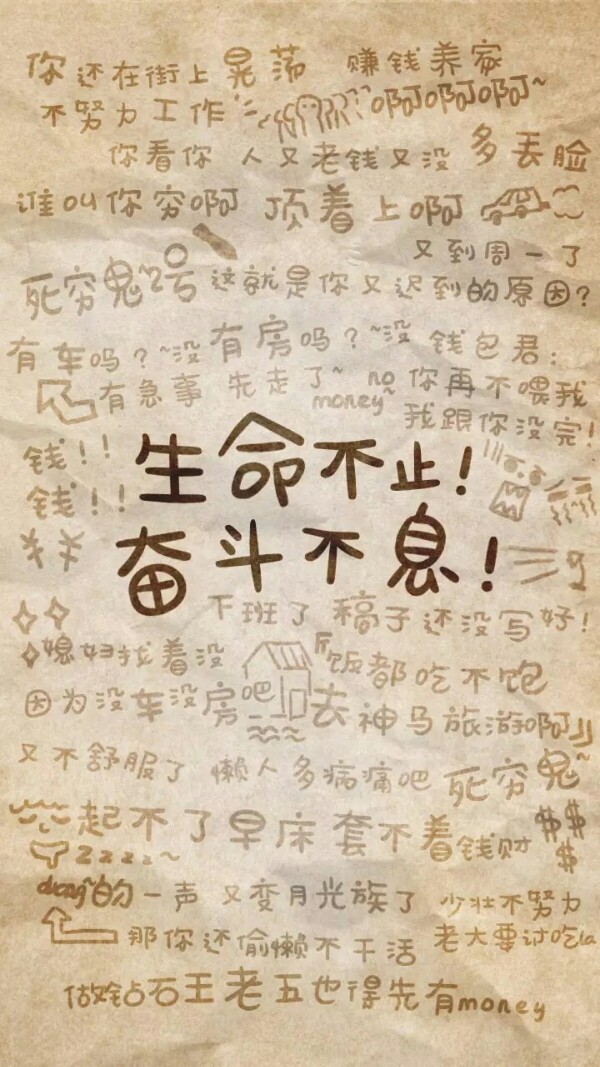 你还在街上晃荡 赚钱养家
不努力工作 啊啊啊~
你看你 人又老钱又没 多丢脸
谁叫你穷啊 顶着上啊
又到周一了
死穷鬼~2号 这就是你又迟到的原因?
有车吗?~没有房吗?~没 钱包君:
有急事 先走了~ no money~ 你再不喂我
我跟你没完!
钱!!
钱!!
生命不止!
奋斗不息!
下班了 稿子还没写好!
媳妇找着没 饭都吃不饱
因为没车没房吧 去神马旅游啊
又不舒服了 懒人多病痛吧 死穷鬼~
起不了早床套不着钱财 $$$
zzzz~
duang的一声 又变月光族了 少壮不努力
那你还偷懒不干活 老大要讨吃la
做钻石王老五也得先有money